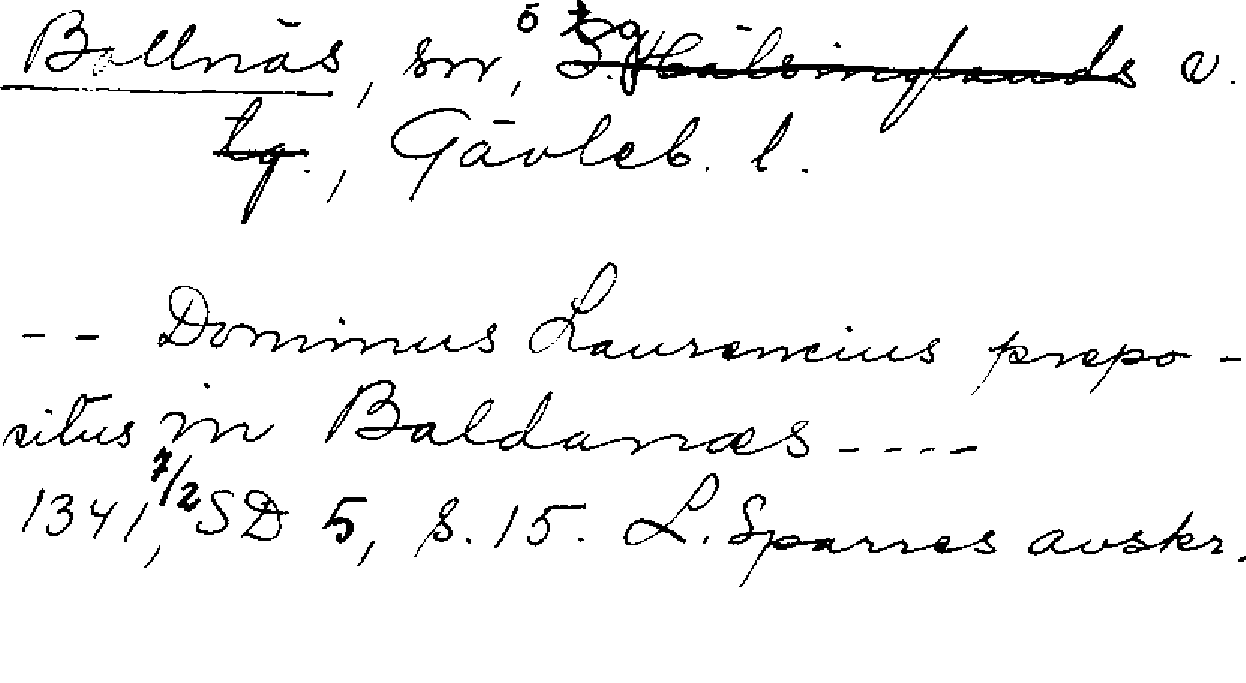 Bollnäs, sn, ö tg S. Hälsinglands v.
tg., Gävleb. l.
-- Dominus Laurencius prepo-
situs in Baldanæs ----
1341, 7/2 SD 5, s. 15. L. Sparres avskr.